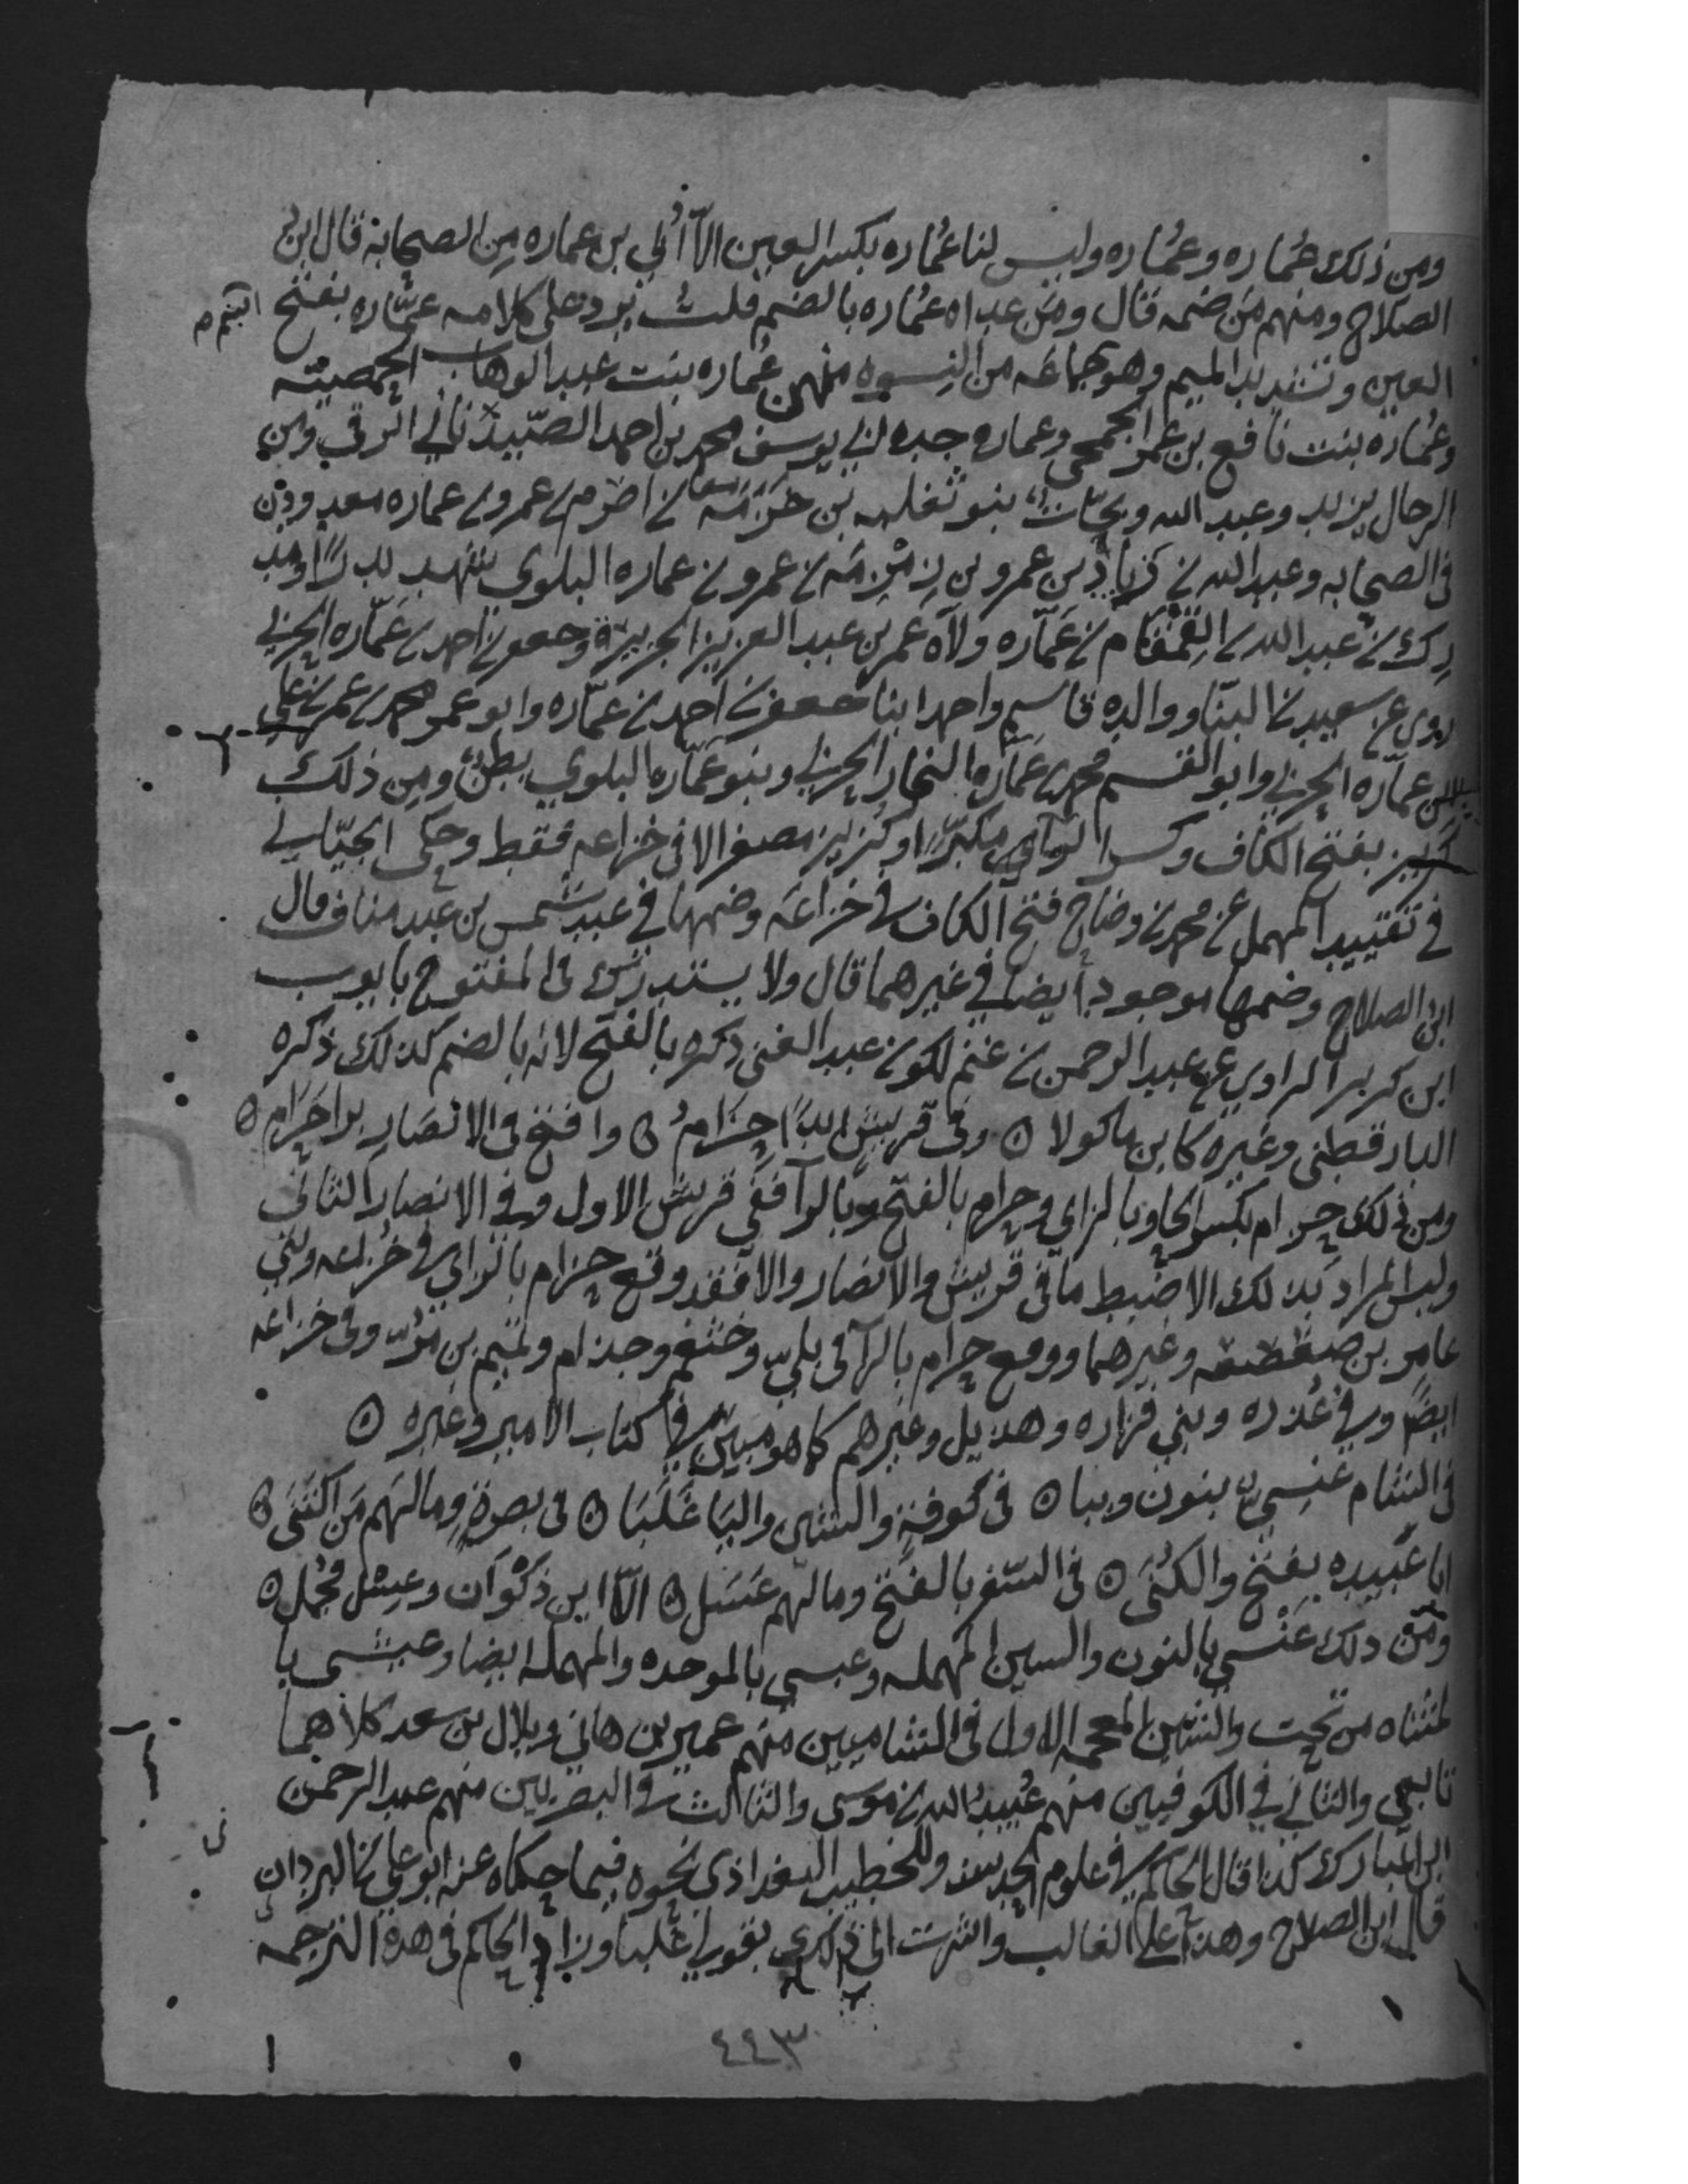 ومن ذلك عُماره وعُماره وليس لنا عُماره بكسر العين الا أُبي بن عماره من الصحابة قال ابن
الصلاح ومنهم من ضمه قال ومن عداه عُماره بالضم قلت يرد على كلامه عمّاره بفتح
العين وتشديد الميم وهو جماعه من النسوه منهن عُماره بنت عبد الوهاب الحمصيّه
وعُماره بنت نافع بن عمر الجمحي وعماره جده ابي يوسف محمد بن احمد الرقي ومن
الرجال يزيد وعبد الله وبحّاث بنو ثعلبه بن خزمه بن اصرم بن عمرو بن عماره معدودون
في الصحابه وعبد الله بن زياد بن عمرو بن زمزمه بن عمرو بن عماره البلوي شهد بدرًا ومد
رك بن عبد الله بن القمقام بن عمّاره ولاه عمر بن عبد العزيز الجزيرة وجعفر بن احمد بن عمّاره الحربي
روى عن سعيد بن البنّا ووالده قاسم واحمد ابنا جعفر بن احمد بن عمّاره وابو عمر محمد بن عمر بن علي
بن عمّاره الحربي وابو القسم محمد بن عمّاره النجار الحربي وبنو عمّاره البلوي بطن ومن ذلك
كَريز بفتح الكاف وكسر الرآء مكبّرًا وكُريز مصغرا لا في خزاعه فقط وحكى الجيّاني
في تقييد المهمل عن محمد بن وضاح فتح الكاف في خزاعه وضمها في عبد شمس بن عبد مناف قال
ابن الصلاح وضمها موجود ايضا في غيرهما قال ولا يستدرك في المفتوح بايوب
ابن كريز الراوي عن عبد الرحمن بن غنم لكون عبد الغني ذكره بالفتح لانه بالضم كذلك ذكره
الدارقطني وغيره كابن ماكولا ه وفي قريش ابدًا حِزَامُ ه وافتح في الانصار برا حَرَام ه
ومن ذلك حزام بكسر الحا وبالزاي وحرام بالفتح وبالرآ ففي قريش الاول وفي الانصار الثاني
وليس المراد بذلك الا ضبط ما في قريش والانصار والا فقد وقع حزام بالزاي في خزاعه وبني
عامر بن صعصعه وغيرهما ووقع حرام بالرآ في بليّ وخثعم وجذام وتميم بن مرّ وفي خزاعه
ايضًا وفي عُذره وبني فزاره وهذيل وغيرهم كما هو مبين في كتاب الامير وغيره ه
في الشام عنسيّ بنون وببا ه في كوفة والشين واليا غَلَبَا ه في بصرةٍ وما لهم مَن اكتنَى ه
ابا عَبيده بفتح والكُنَى ه في السَفر بالفتح وما لهم عَسَل ه الّا ابن ذكْوَان وعِسْل فجُمل ه
ومن ذلك عَنْسي بالنون والسين المهمله وعبسي بالموحده والمهمله ايضا وعيشي با
لمثناه من تحت والشين المعجمه الاول في الشاميين منهم عمير بن هاني وبلال بن سعد كلاهما
تابعي والثاني في الكوفيين منهم عُبيد الله بن موسى والثالث في البصريين منهم عبد الرحمن
ابن المبارك كذا قال الحاكم في علوم الحديث وللخطيب البغداذي نحوه فيما حكاه عنه ابو علي البرداني
قال ابن الصلاح وهذا على الغالب واشرت الى ذلك بقولي غلبا وزاد الحاكم في هذه الترجمه
٤٤٣